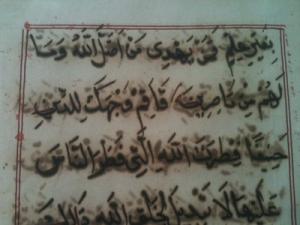 بِغَيْرِ عِلْمٍ فَمَنْ يَهْدِي مَنْ أَضَلَّ اللَّهُ وَمَا
لَهُمْ مِنْ نَاصِرِينَ فَأَقِمْ وَجْهَكَ لِلدِّينِ
حَنِيفًا فِطْرَتَ اللَّهِ الَّتِي فَطَرَ النَّاسَ
عَلَيْهَا لَا تَبْدِيلَ لِخَلْقِ اللَّهِ ذَلِكَ